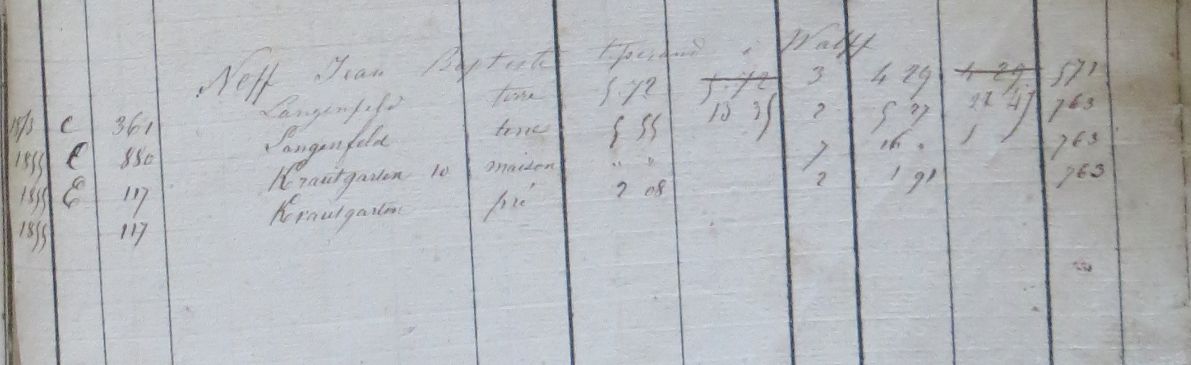 Neff Jean Baptiste tisserand à Walff
1853 C 361 Langenfeld terre 5.72 5.72 3 4 29 4 29 571
1855 C 880 Langenfeld terre 5 55 13 35 2 5 27 763
1855 E 117 Krautgarten 10 maison " " 7 16 " 763
1855 117 Krautgarten pré 2 08 2 1 91 763